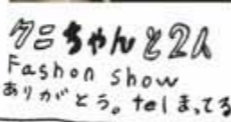 クニちゃんと2人
Fashon show
ありがとう。telまってる